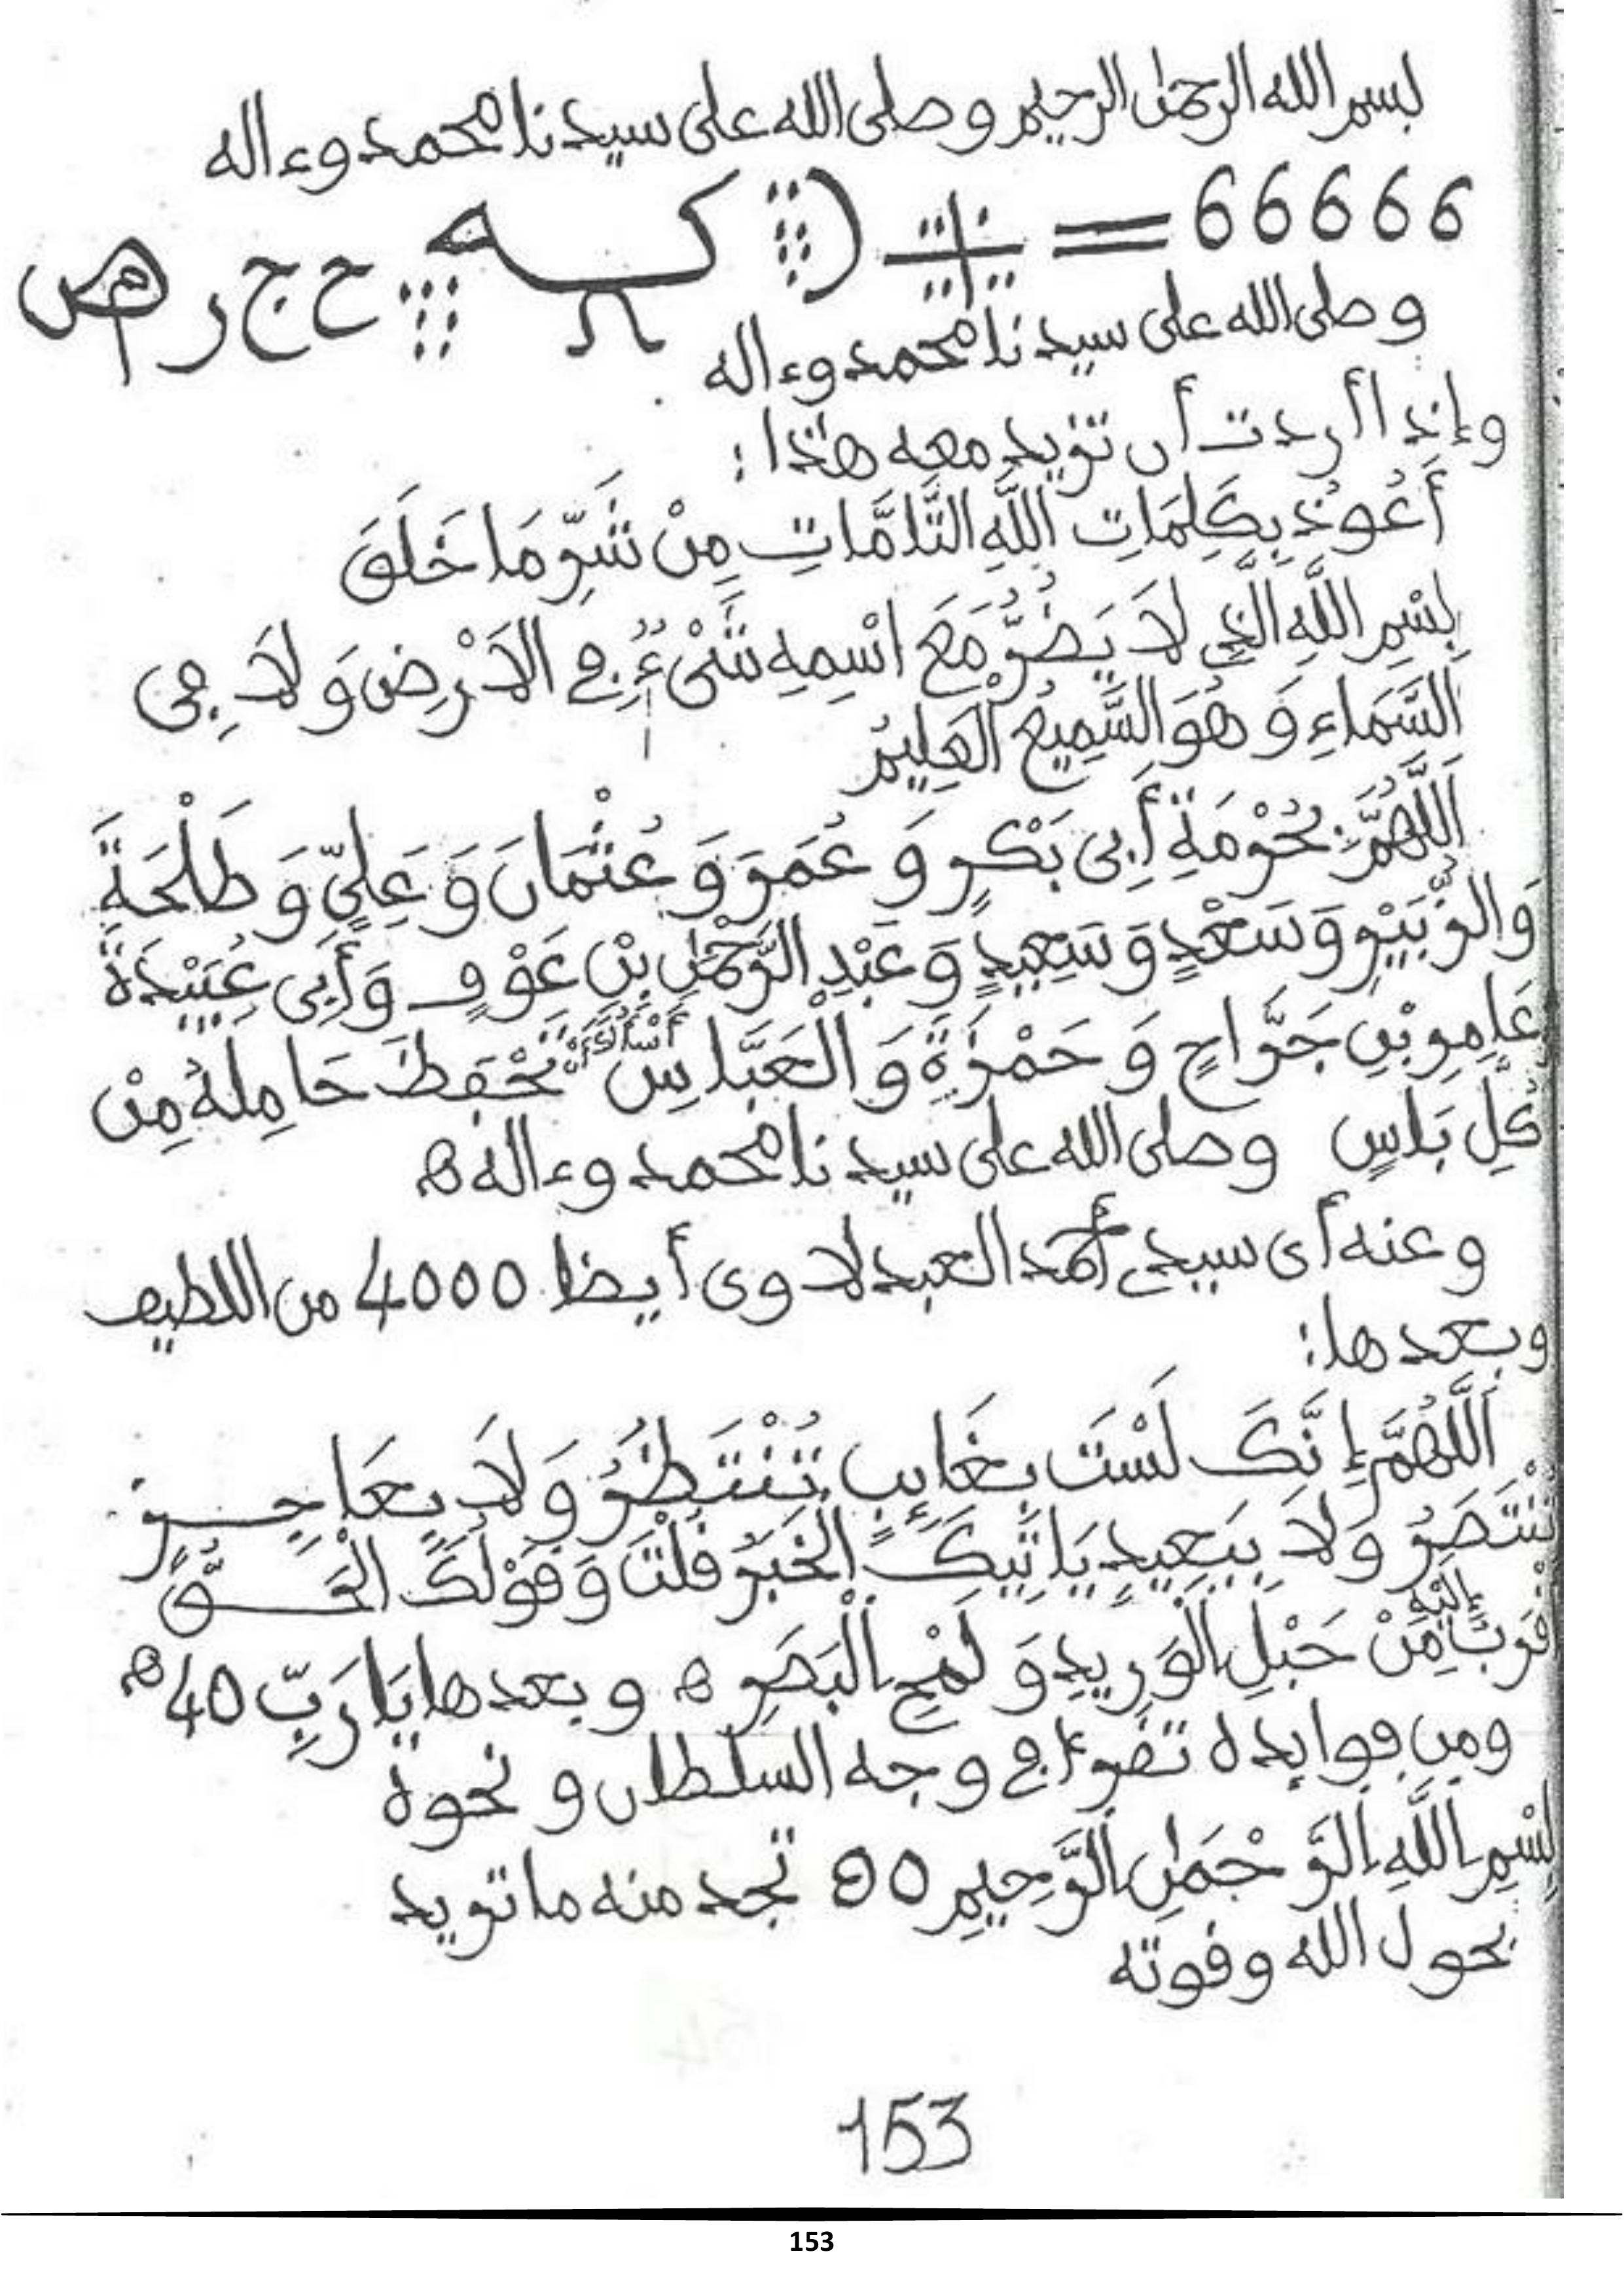 بسم الله الرحمٰن الرحيم وصلى الله على سيدنا محمد وءاله
66666
ح ج ر
وصلى الله على سيدنا محمد وءاله
وإذا أردت أن تزيد معه هٰذا:
أَعُوذُ بِكَلِمَاتِ اللَّهِ التَّامَّاتِ مِنْ شَرِّ مَا خَلَقَ
بِسْمِ اللَّهِ الَّذِي لَا يَضُرُّ مَعَ اسْمِهِ شَيْءٌ فِي الَارْضِ وَلَا فِي
السَّمَاءِ وَهُوَ السَّمِيعُ الْعَلِيمُ
اَللَّهُمَّ بِحُرْمَةِ أَبِى بَكْرٍ وَعُمَرَ وَعُثْمَانَ وَعَلِيٍّ وَطَلْحَةَ
وَالزُّبَيْرِ وَسَعْدٍ وَسَعِيدٍ وَعَبْدِ الرَّحْمٰنِ بْنِ عَوْفٍ وَأَبِى عُبَيْدَةَ
عَامِرِ بْنِ جَرَّاحٍ وَحَمْزَةَ وَالْعَبَّاسِ أَسْأَلُكَ أَنْ تَحْفِظَ حَامِلَهُ مِنْ
كُلِّ بَاسٍ وصلى الله على سيدنا محمد وءاله ه
وعنه أى سيدي أحمد العبدلاوى أيضا 4000 من اللطيف
وبعدها:
اَللَّهُمَّ إِنَّكَ لَسْتَ بِغَايِبٍ تُنْتَظَرُ وَلَا بِعَاجِزٍ
تُنْتَصَرُ وَلَا بِبَعِيدٍ يَاتِيكَ الْخَبَرُ قُلْتَ وَقَوْلُكَ الْحَقُّ
أَقْرَبُ إِلَيْهِ مِنْ حَبْلِ الْوَرِيدِ وَلَمْحِ الْبَصَرِ ه وبعدها يَا رَبِّ 40 ه
ومن فوايده تقرءا في وجه السلطان ونحوه
بِسْمِ اللَّهِ الرَّحْمٰنِ الرَّحِيمِ 50 تجد منه ما تريد
بحول الله وقوته
153
153